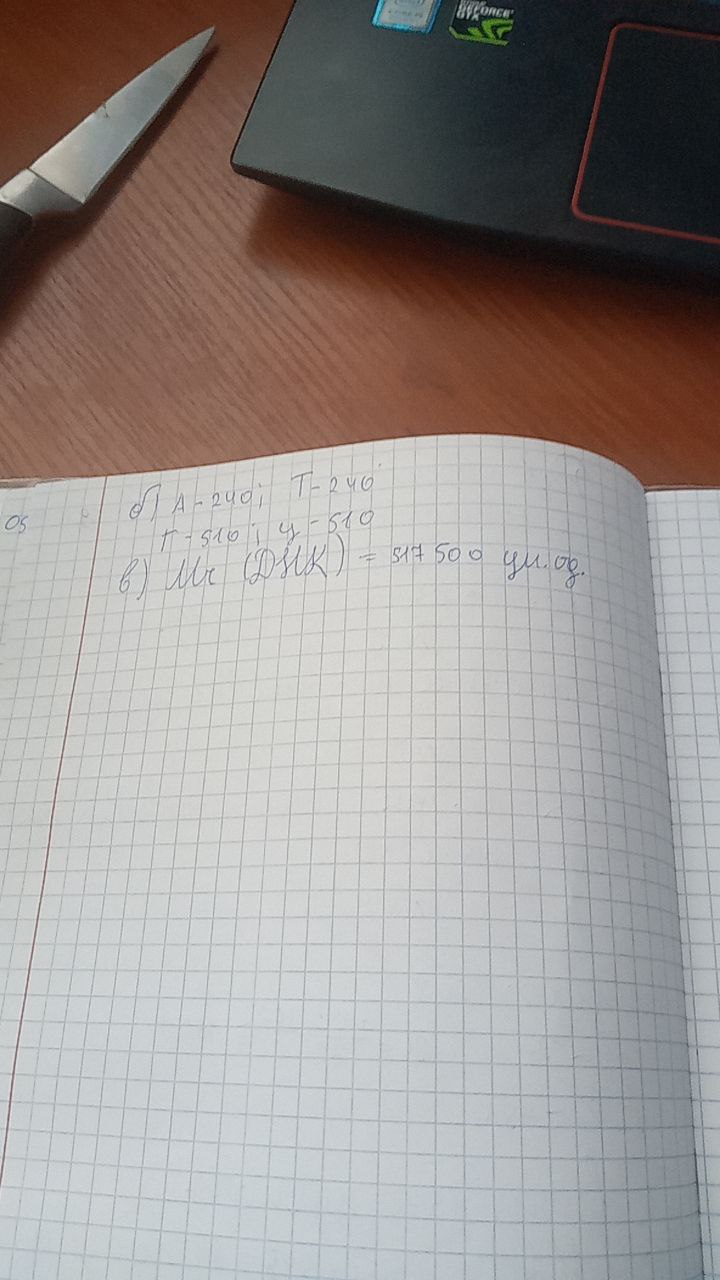 GEFORCE
GTX
05
б) А - 240; Т - 240
Г - 510; У - 510
в) Mr (ДНК) = 517 500 ум. од.